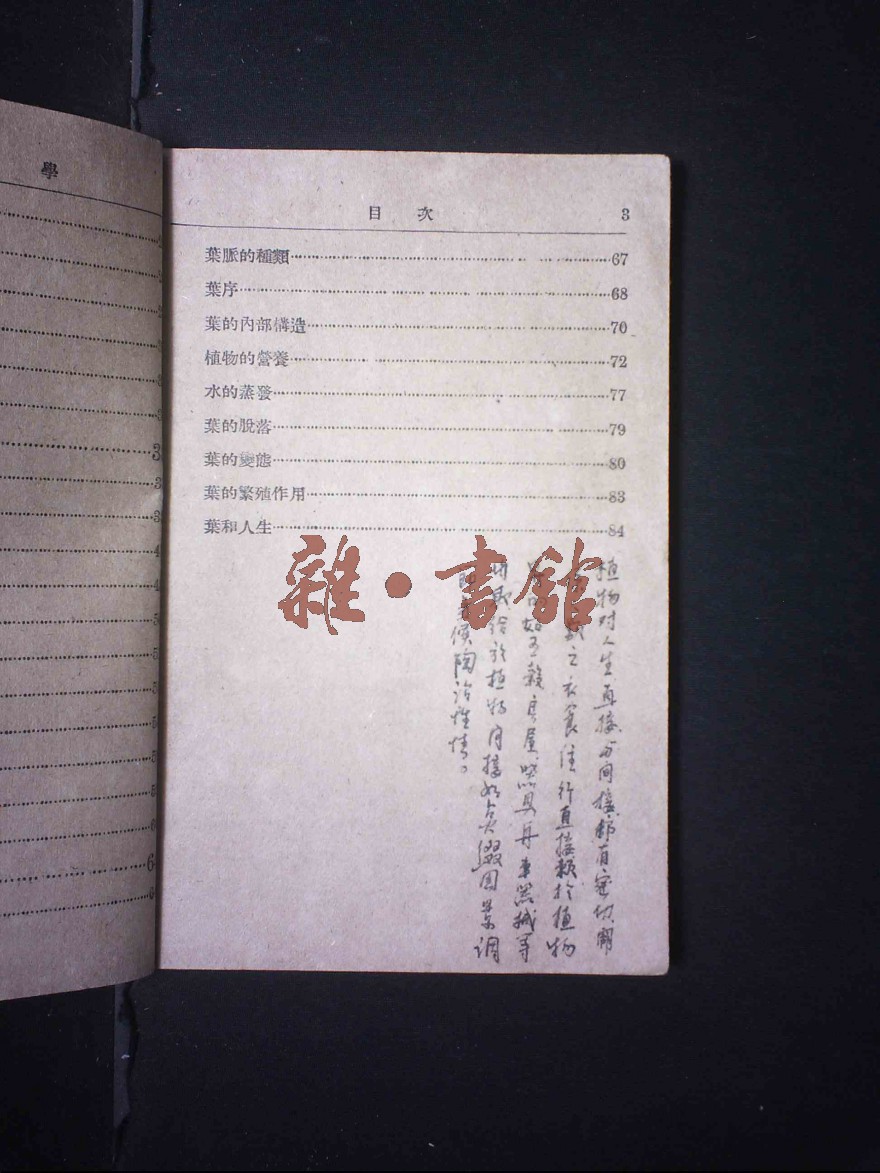 學
目次 3
葉脈的種類 67
葉序 68
葉的內部構造 70
植物的營養 72
水的蒸發 77
葉的脫落 79
葉的變態 80
葉的繁殖作用 83
葉和人生 84
雜·書館
植物对人生直接与间接都有密切關
之衣食住行直接賴於植物
如五穀房屋 舟車器械等
於植物间接如点缀园景调
候陶冶性情。